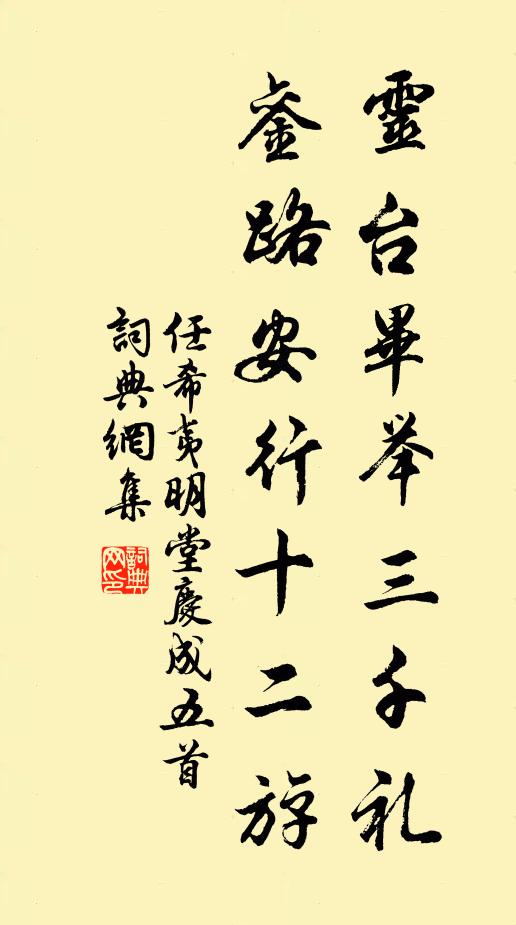 靈台畢举三千礼
銮路安行十二斿
任希夷明堂慶成五首
詞典網集
詞典网印